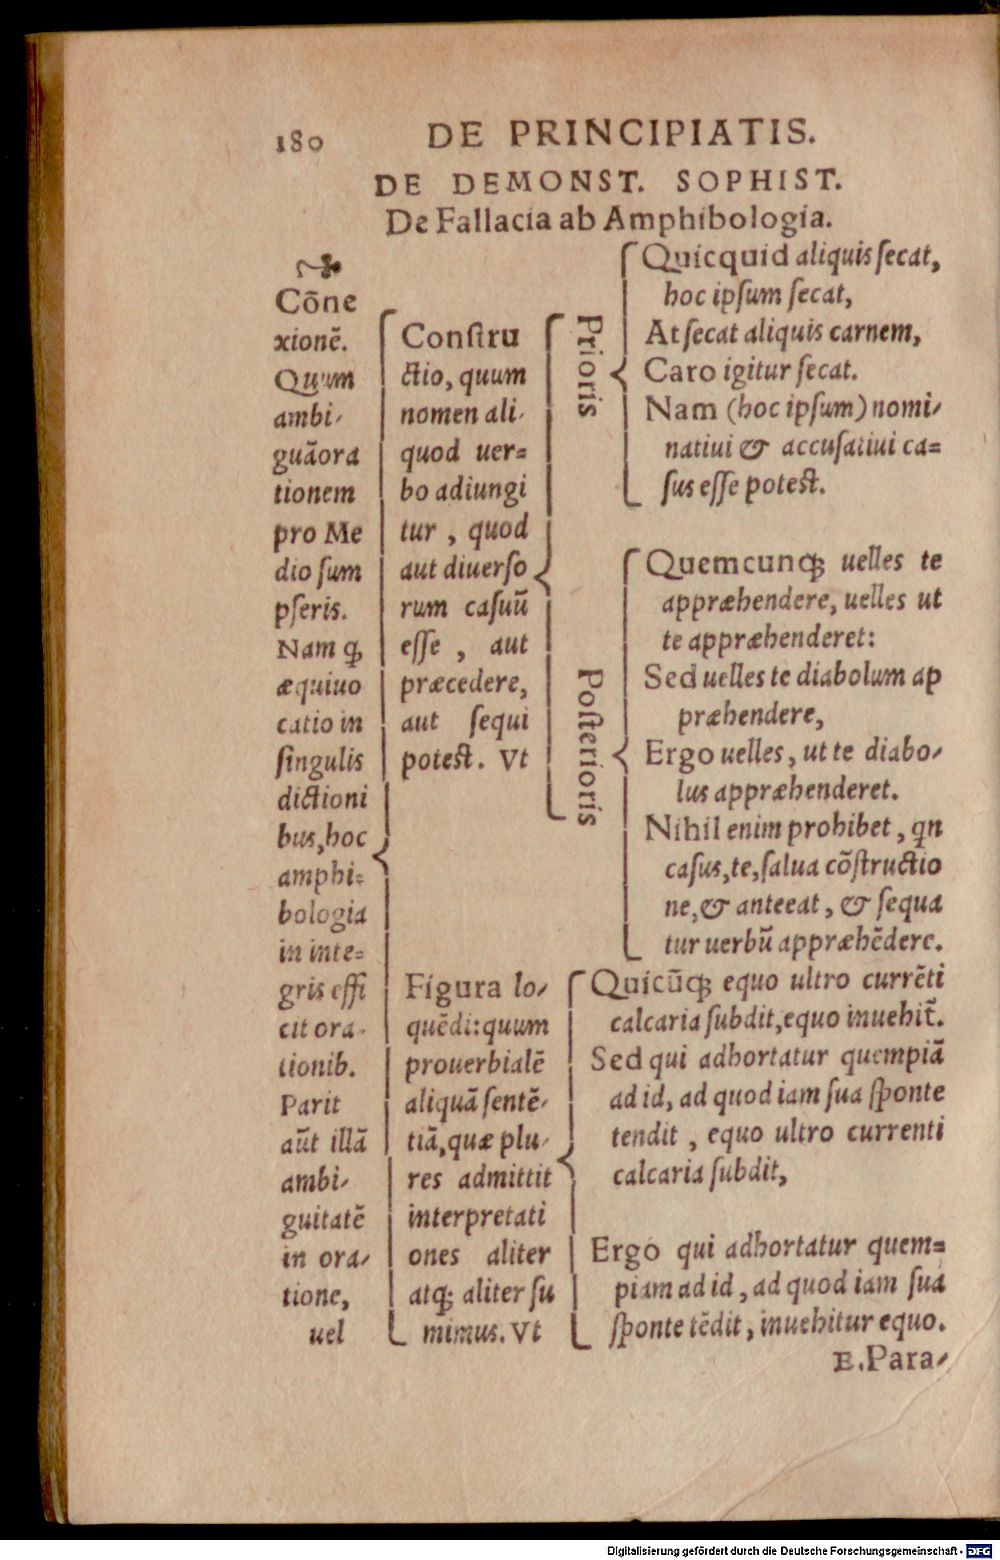 180 DE PRINCIPIATIS.
DE DEMONST. SOPHIST.
De Fallacia ab Amphibologia.
Cōne
xionē.
Quum
ambi-
guāora
tionem
pro Me
dio sum
pseris.
Nam ꝙ
æquiuo
catio in
singulis
dictioni
bus, hoc
amphi-
bologia
in inte-
gris effi
cit ora-
tionib.
Parit
aūt illā
ambi-
guitatē
in ora-
tione,
uel
Constru
ctio, quum
nomen ali-
quod uer-
bo adiungi
tur, quod
aut diuerso
rum casuū
esse, aut
præcedere,
aut sequi
potest. Vt
Prioris
Quicquid aliquis secat,
hoc ipsum secat,
At secat aliquis carnem,
Caro igitur secat.
Nam (hoc ipsum) nomi-
natiui & accusatiui ca-
sus esse potest.
Posterioris
Quemcunqꝫ uelles te
appræhendere, uelles ut
te appræhenderet:
Sed uelles te diabolum ap
præhendere,
Ergo uelles, ut te diabo-
lus appræhenderet.
Nihil enim prohibet, qn
casus, te, salua cōstructio
ne, & anteeat, & sequa
tur uerbū appræhēdere.
Figura lo-
quēdi: quum
prouerbialē
aliquā sentē-
tiā, quæ plu-
res admittit
interpretati
ones aliter
atqꝫ aliter su
mimus. Vt
Quicūqꝫ equo ultro currēti
calcaria subdit, equo inuehit̄.
Sed qui adhortatur quempiā
ad id, ad quod iam sua sponte
tendit, equo ultro currenti
calcaria subdit,
Ergo qui adhortatur quem-
piam ad id, ad quod iam sua
sponte tēdit, inuehitur equo.
E. Para-
Digitalisierung gefördert durch die Deutsche Forschungsgemeinschaft - DFG